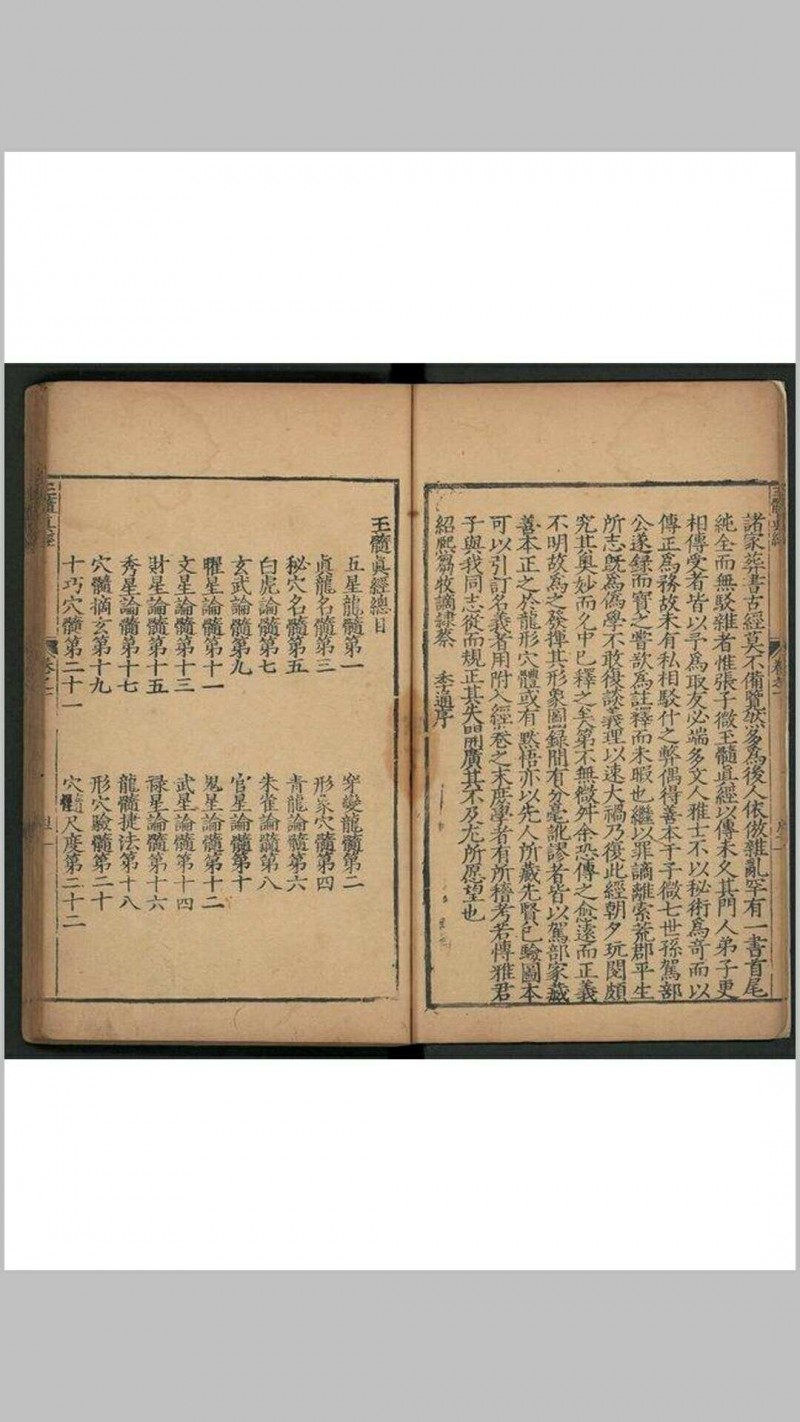 諸家葬書古經莫不備覽然多為後人依倣雜亂罕有一書首尾
純全而無駁雜者惟張子微玉髓眞經以傳未久其門人弟子更
相傳受者皆以予為取友必端多文人雅士不以秘術為奇而以
傳正為務故未有私相駁什之弊偶得善本于子微七世孫駕部
公遂録而寶之嘗欲為註釋而未暇也繼以罪謫離索荒郡平生
所志既為偽學不敢復談義理以速大禍乃復此經朝夕玩閱頗
究其奥妙而久中已釋之矣第不無微舛余恐傳之愈遠而正義
不明故為之發揮其形象圖録間有分毫訛謬者皆以駕部家藏
善本正之於龍形穴體或有默悟亦以先人所藏先賢已驗圖本
可以引訂名義者用附入經卷之末庶學者有所稽考若博雅君
子與我同志從而規正其失開廣其不及尤所愿望也
紹熙蒭牧謫隷蔡 季通序
玉髓眞經總目
五星龍髓第一 穿變龍髓第二
眞龍名髓第三 形象穴髓第四
秘穴名髓第五 青龍論髓第六
白虎論髓第七 朱雀論髓第八
玄武論髓第九 官星論髓第十
曜星論髓第十一 鬼星論髓第十二
文星論髓第十三 武星論髓第十四
財星論髓第十五 禄星論髓第十六
秀星論髓第十七 龍髓捷法第十八
穴髓摘玄第十九 形穴驗髓第二十
十巧穴髓第二十一 穴髓尺度第二十二